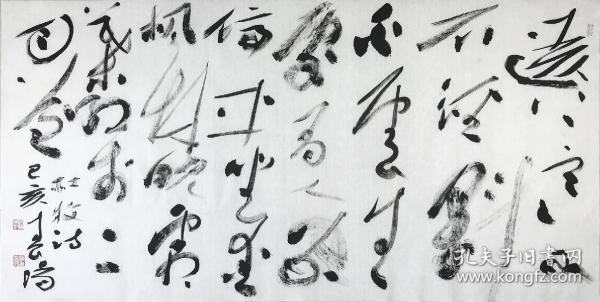 遠上寒山
石徑斜
白雲生
處有人家
停車坐愛
楓林晚霜
葉紅於二
月花
杜牧诗
己亥
孔夫子旧书网
www.kongfz.com